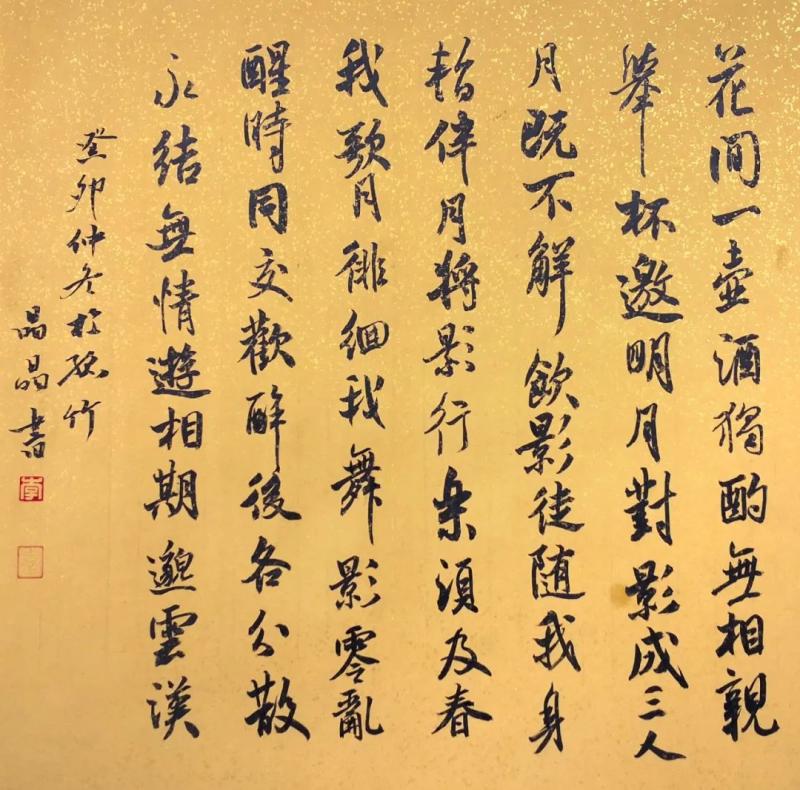 花間一壺酒獨酌無相親
舉杯邀明月對影成三人
月既不解飲影徒随我身
暫伴月將影行樂須及春
我歌月徘徊我舞影零亂
醒時同交歡醉後各分散
永結無情遊相期邈雲漢
癸卯仲冬於竹
晶晶書
李